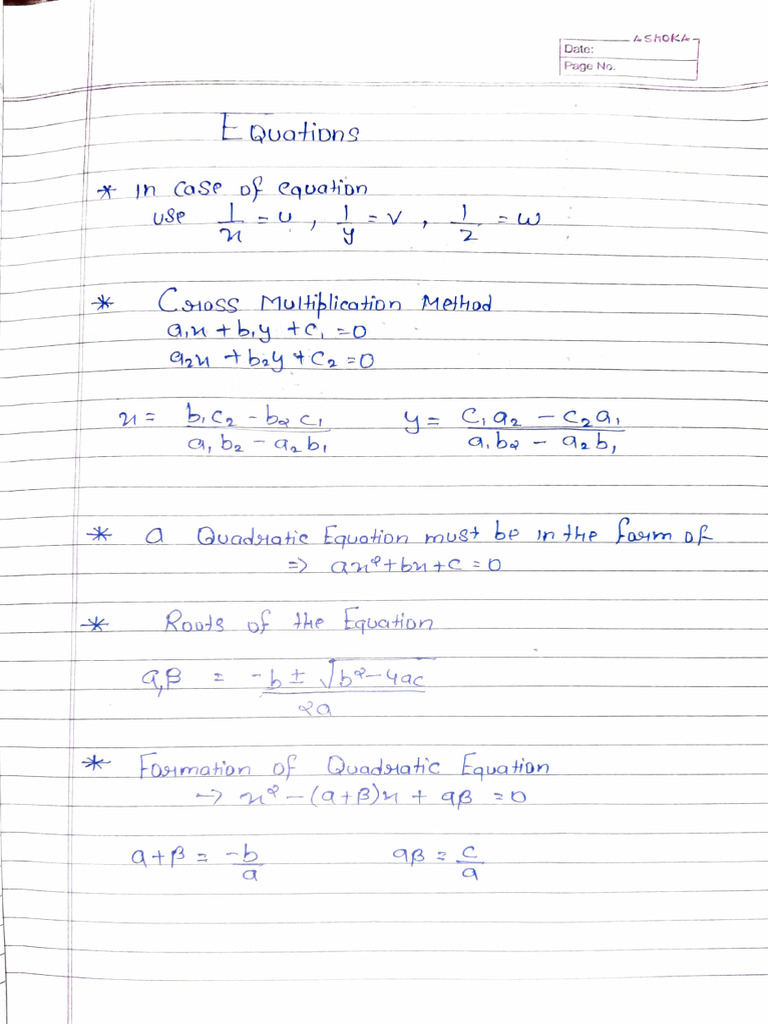 ASHOKA
Date:
Page No.
Equations
* In case of equation
use 1/x = u, 1/y = v, 1/z = w
* Cross Multiplication Method
a₁x + b₁y + c₁ = 0
a₂x + b₂y + c₂ = 0
x = (b₁c₂ - b₂c₁)/(a₁b₂ - a₂b₁)    y = (c₁a₂ - c₂a₁)/(a₁b₂ - a₂b₁)
* A Quadratic Equation must be in the form of
=> ax² + bx + c = 0
* Roots of the Equation
α,β = (-b ± √(b² - 4ac))/2a
* Formation of Quadratic Equation
→ x² - (α+β)x + αβ = 0
α+β = -b/a    αβ = c/a